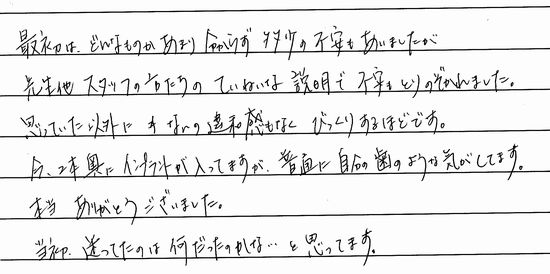 最初は、どんなものかあまり分からず 多少の不安もありましたが
先生他 スタッフの方たちの ていねいな 説明で 不安もとりのぞかれました。
思っていた以外に の違和感もなく びっくりするほどです。
今、2本奥に インプラントが入ってますが、普通に自分の歯のような気がしてます。
本当 ありがとうございました。
当初、迷ってたのは何だったのかな… と思ってます。